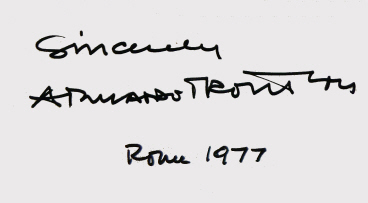 Sincerely
Armando Trovajoli
Rome 1977